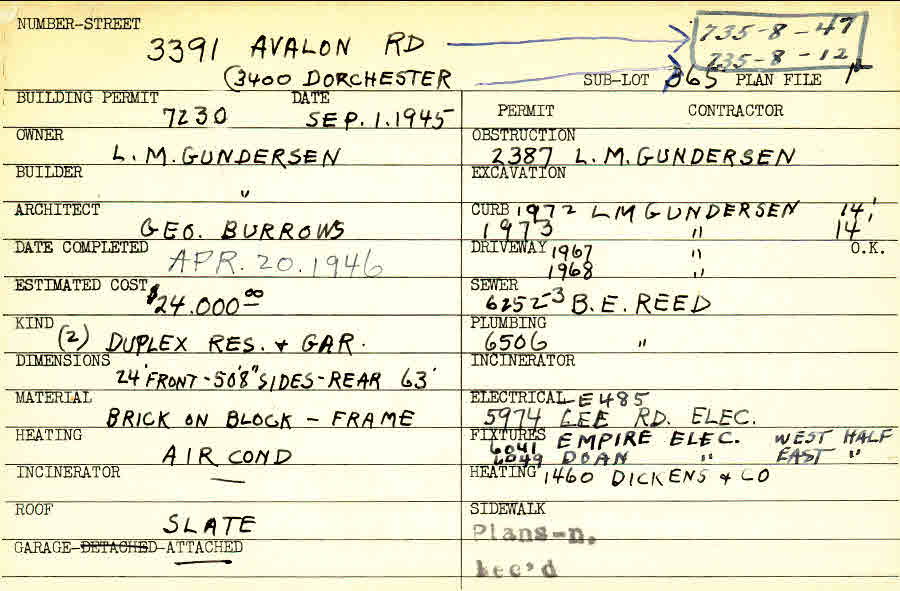 NUMBER-STREET
3391 AVALON RD
735-8-47
735-8-12
(3400 DORCHESTER
SUB-LOT 865 PLAN FILE
BUILDING PERMIT DATE
7230 SEP. 1. 1945
OWNER
L. M. GUNDERSEN
BUILDER
"
ARCHITECT
GEO. BURROWS
DATE COMPLETED
APR. 20. 1946
ESTIMATED COST
$24.000.00
KIND
(2) DUPLEX RES. & GAR.
DIMENSIONS
24' FRONT - 50'8" SIDES - REAR 63'
MATERIAL
BRICK ON BLOCK - FRAME
HEATING
AIR COND
INCINERATOR
—
ROOF
SLATE
GARAGE-DETACHED-ATTACHED
PERMIT CONTRACTOR
OBSTRUCTION
2387 L. M. GUNDERSEN
EXCAVATION
CURB 1972 LM GUNDERSEN 14'
1973 " 14'
DRIVEWAY 1967 " O.K.
1968 "
SEWER
6252-3 B. E. REED
PLUMBING
6506 "
INCINERATOR
ELECTRICAL-E485
5974 LEE RD. ELEC.
FIXTURES EMPIRE ELEC. WEST HALF
6041
6049 DOAN " EAST "
HEATING 1460 DICKENS & CO
SIDEWALK
Plans-n.
Rec'd